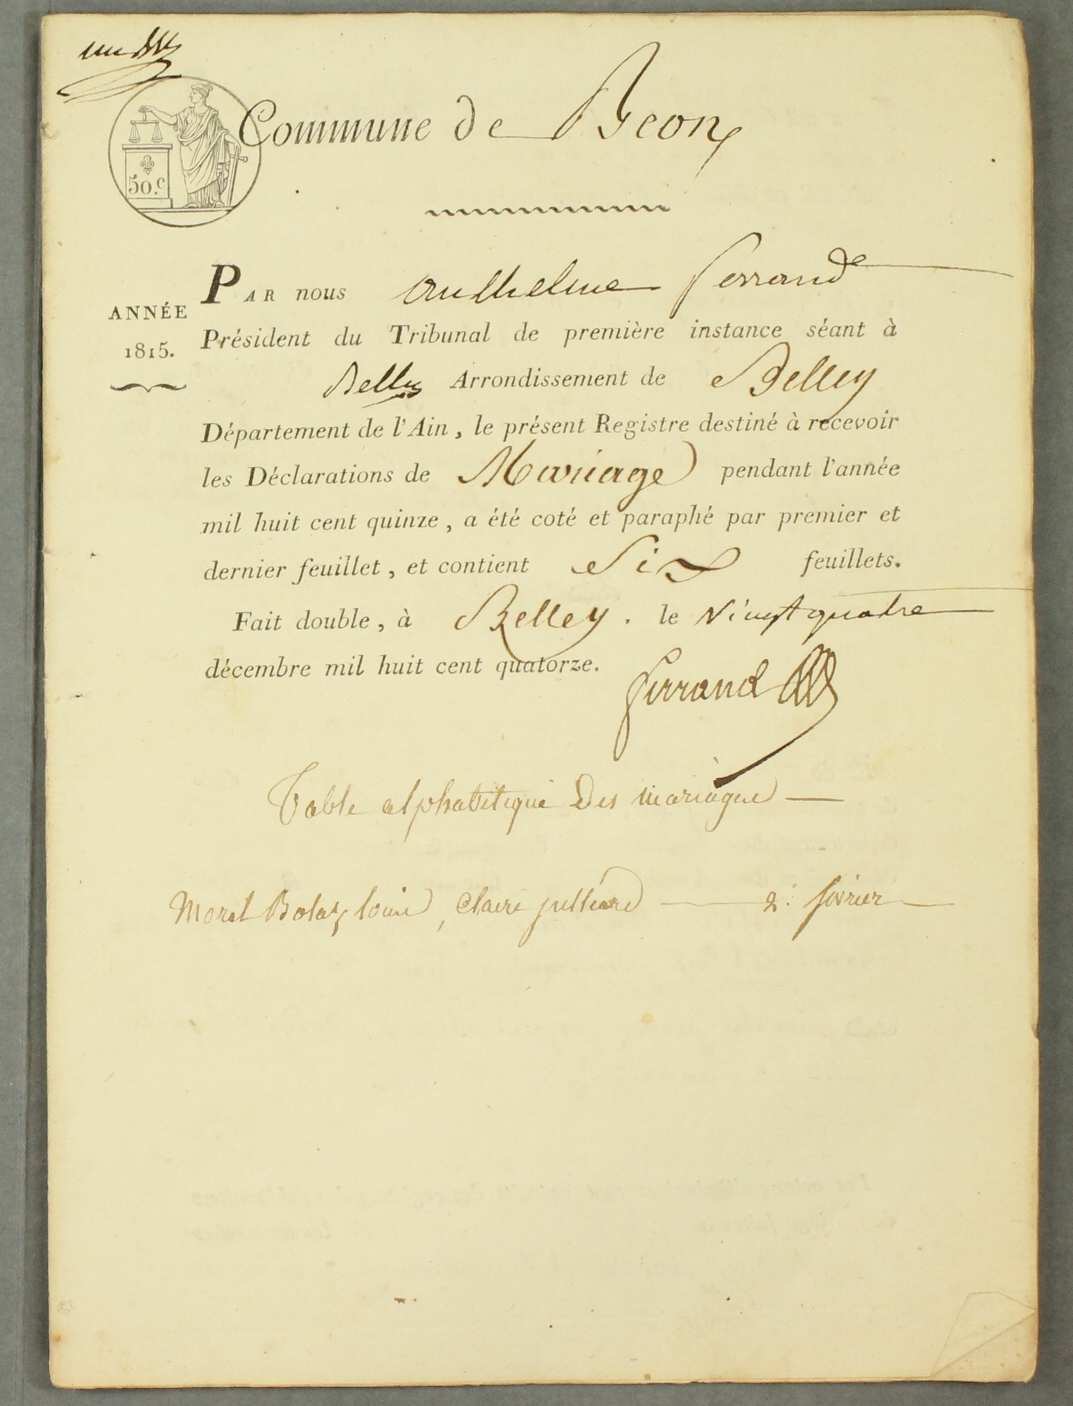 50.c
Commune de Beon
Par nous Anthelme Ferrand
ANNÉE
1815.
Président du Tribunal de première instance séant à
Belley Arrondissement de Belley
Département de l'Ain, le présent Registre destiné à recevoir
les Déclarations de Mariage pendant l'année
mil huit cent quinze, a été coté et paraphé par premier et
dernier feuillet, et contient Six feuillets.
Fait double, à Belley. le vingt quatre
décembre mil huit cent quatorze.
Ferrand
Table alphabetique Des mariages
Morel Bolaz louis, Claire 2. fevrier